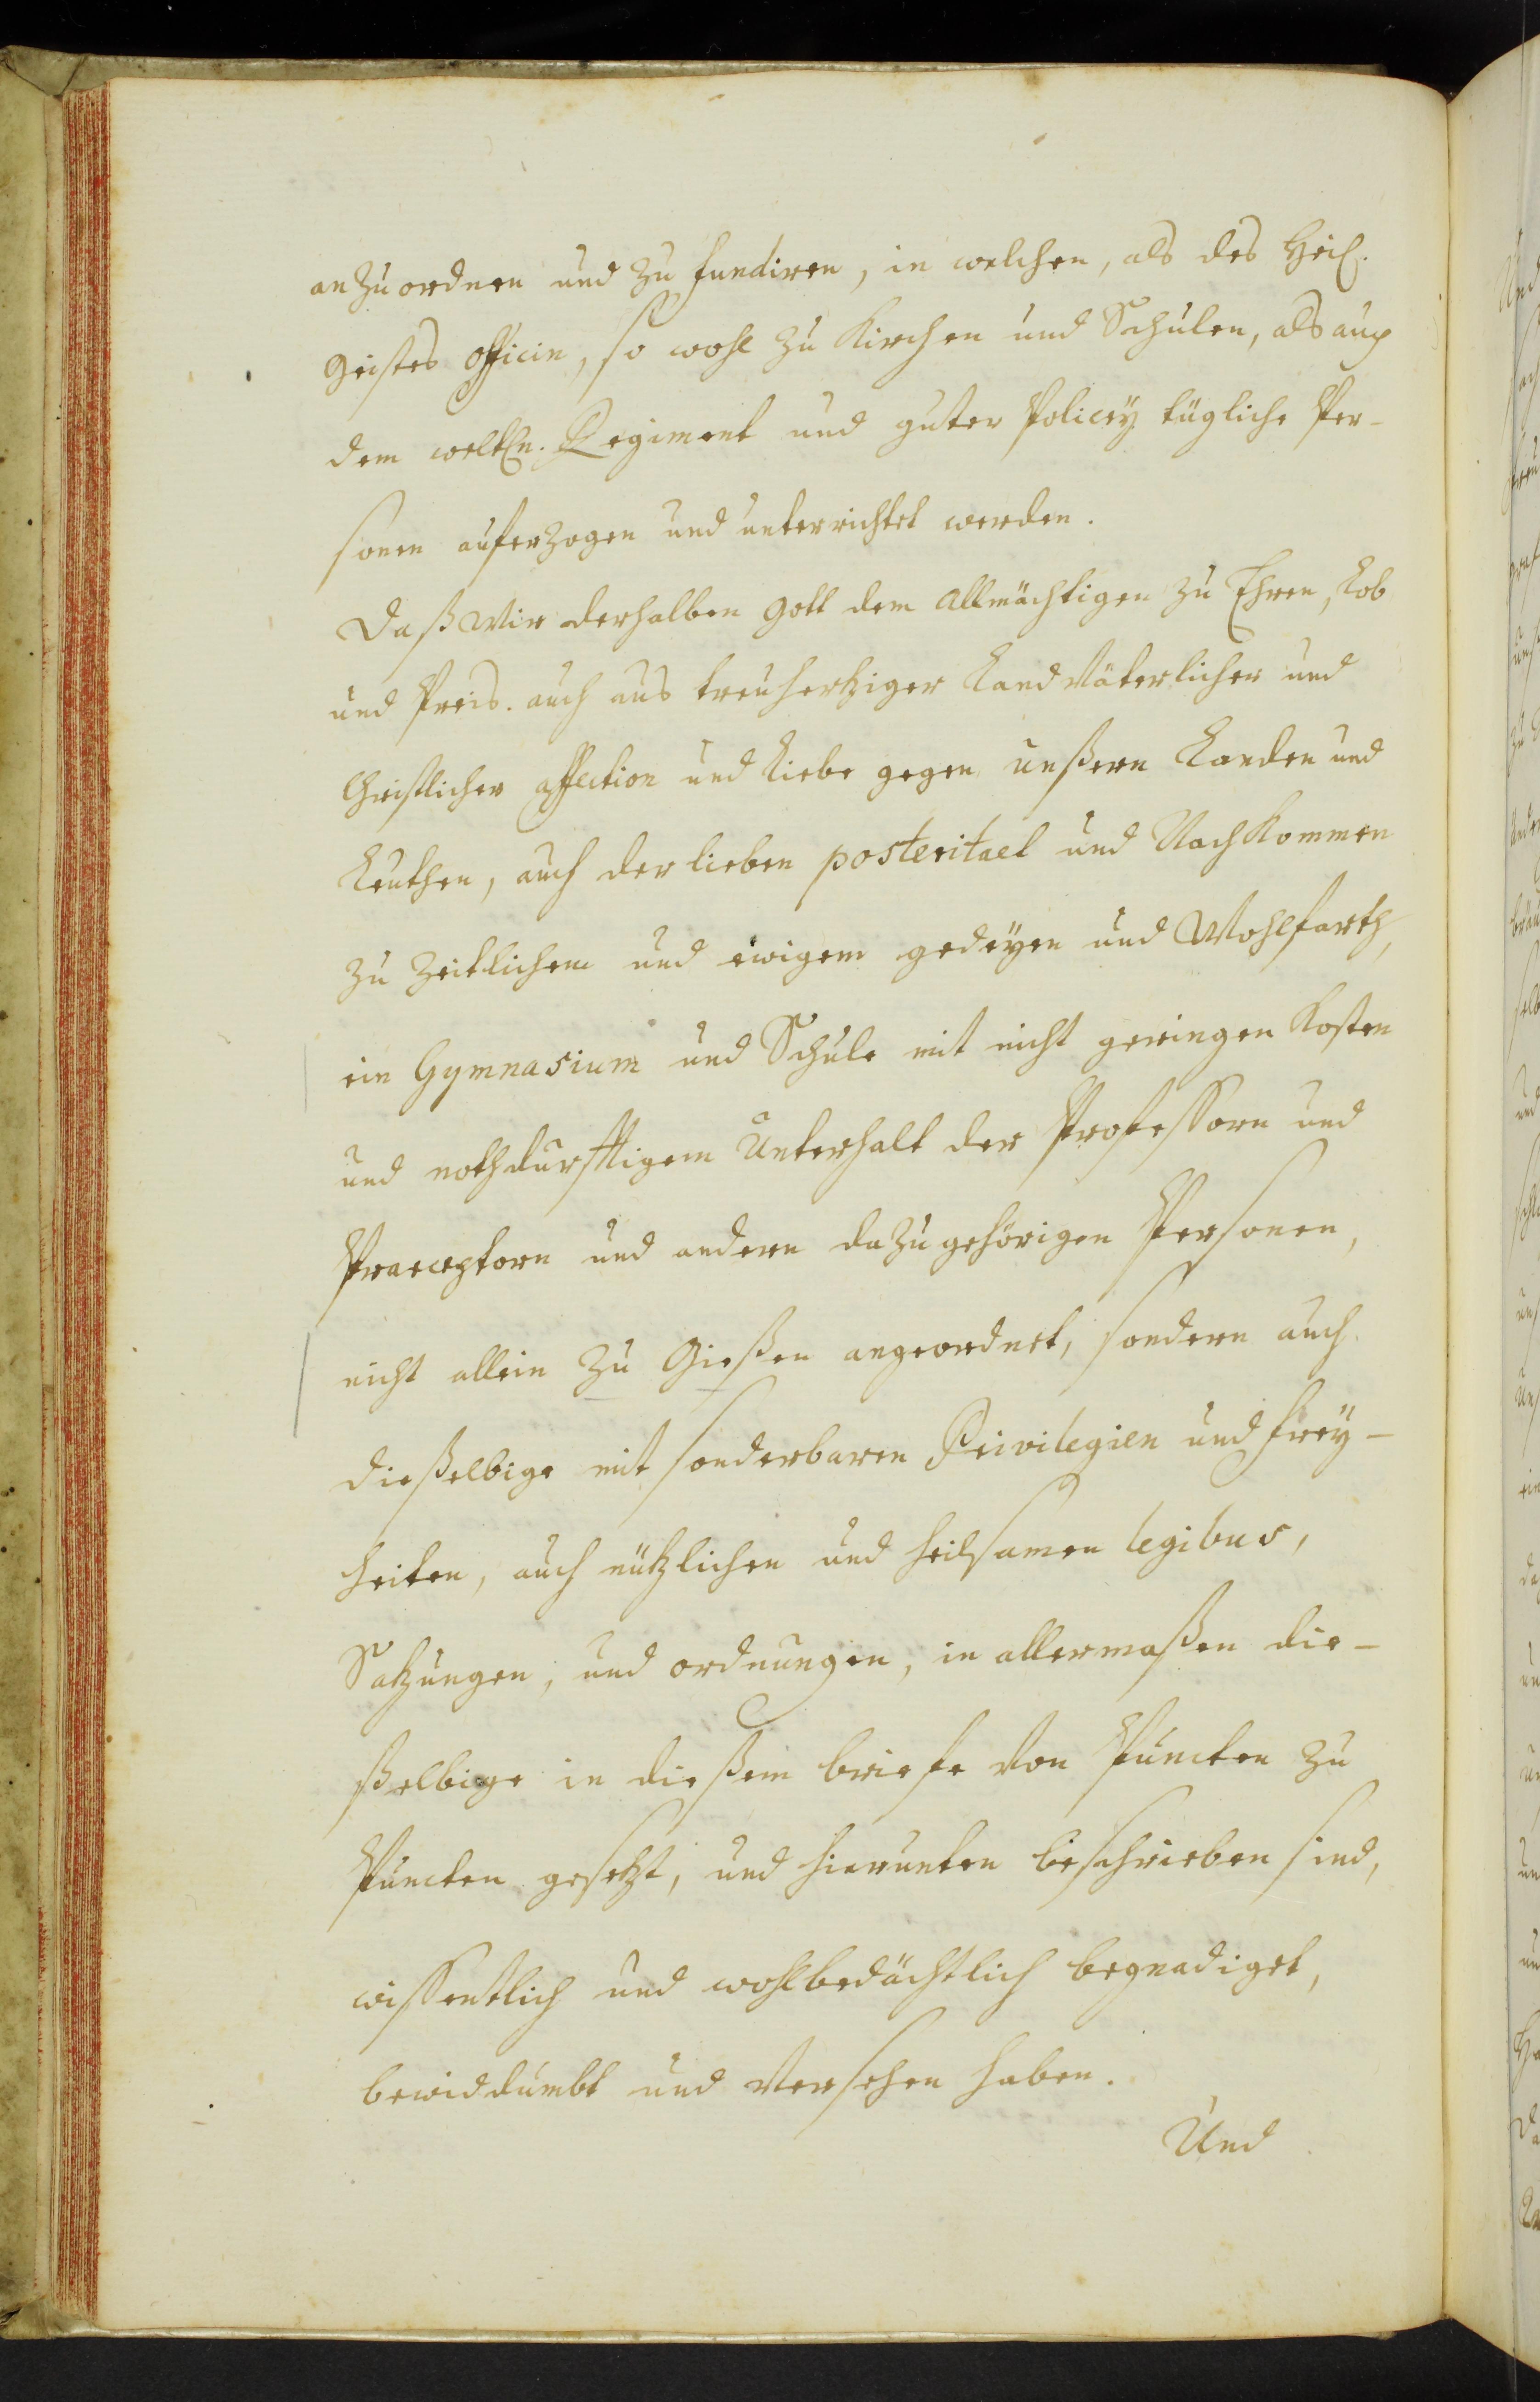 anzuordnen und zu fundiren, in welchen, als des Heil.
Geistes officin, so wohl zu Kirchen und Schulen, als auch
dem weltln. Regiment und guter Policey tügliche Per-
sonen auferzogen und unterrichtet werden.
Daß Wir derhalben Gott dem Allmächtigen zu Ehren, Lob
und Preis. auch aus treuhertziger Landväterlicher und
Christlicher affection und Liebe gegen unßern Landen und
Leuthen, auch der lieben posteritaet und NachKommen
zu Zeitlichem und ewigem gedeÿen und Wohlfarth,
ein Gymnasium und Schule mit nicht geringen Kosten
und nothdurfftigem Unterhalt der Professorn und
Praeceptorn und andern dazu gehörigen Personen,
nicht allein zu Gießen angeordnet, sondern auch
dießelbige mit sonderbaren Privilegien und Freÿ-
heiten, auch nützlichen und heilsamen legibus,
Satzungen, und ordnungen, in allermaßen die-
ßelbige in dießem briefe von Puncten zu
Puncten gesetzt, und hierunten beschrieben sind,
wissentlich und wohlbedächtlich begnadiget,
bewiddumbt und versehen haben.
Und